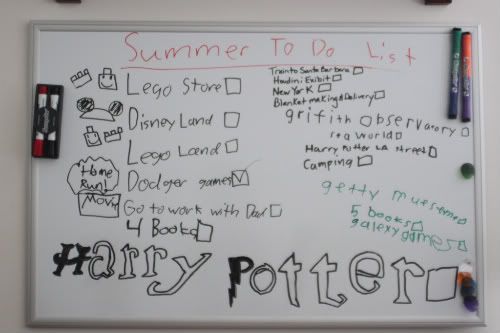 Summer To Do List
Lego Store
DisneyLand
Lego Land
Home Run!
Dodger games
Movie
Go to work with Dad
4 Books
Train to Santa Barbara
Houdini Exibit
New York
Blanket making & Delivery
grifith observatory
Harry Potter LA Street
Camping
getty museum
5 books
galexy games
Harry Potter